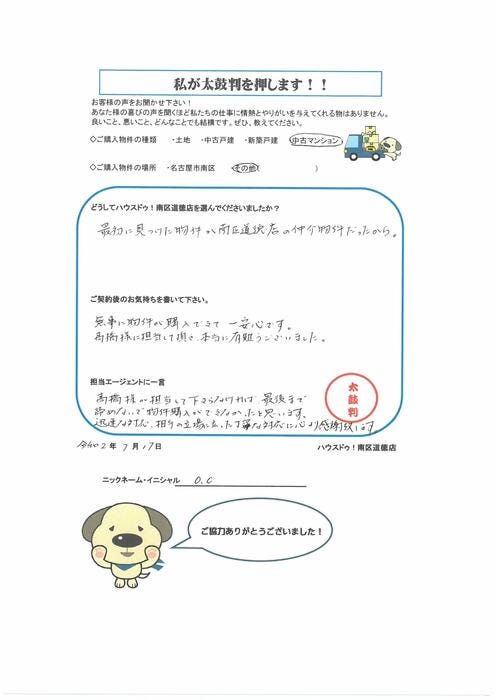 私が太鼓判を押します！！
お客様の声をお聞かせ下さい！
あなた様の喜びの声を聞くほど私たちの仕事に情熱とやりがいを与えてくれる物はありません。
良いこと、悪いこと、どんなことでも結構です。ぜひ、教えてください。
◇ご購入物件の種類 ・土地 ・中古戸建 ・新築戸建 中古マンション
◇ご購入物件の場所 ・名古屋市南区 その他( )
どうしてハウスドゥ！南区道徳店を選んでくださいましたか？
最初に見つけた物件が南区道徳店の仲介物件だったから。
ご契約後のお気持ちを書いて下さい。
無事に物件が購入できて一安心です。
高橋様に担当して頂き、本当に有難うございました。
担当エージェントに一言
高橋様が担当して下さらなければ、最後まで
諦めないで物件購入ができなかったと思います。
迅速な対応、相手の立場に立った丁寧な対応に心より感謝致します。
太鼓判
令和2年7月17日
ハウスドゥ！南区道徳店
ニックネーム・イニシャル O.C
ご協力ありがとうございました！